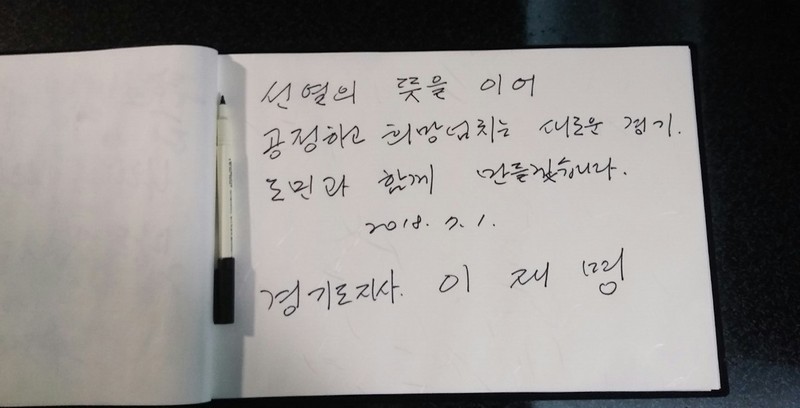 선열의 뜻을 이어
공정하고 희망넘치는 새로운 경기.
도민과 함께 만들겠습니다.
2018. 7. 1.
경기도지사. 이재명